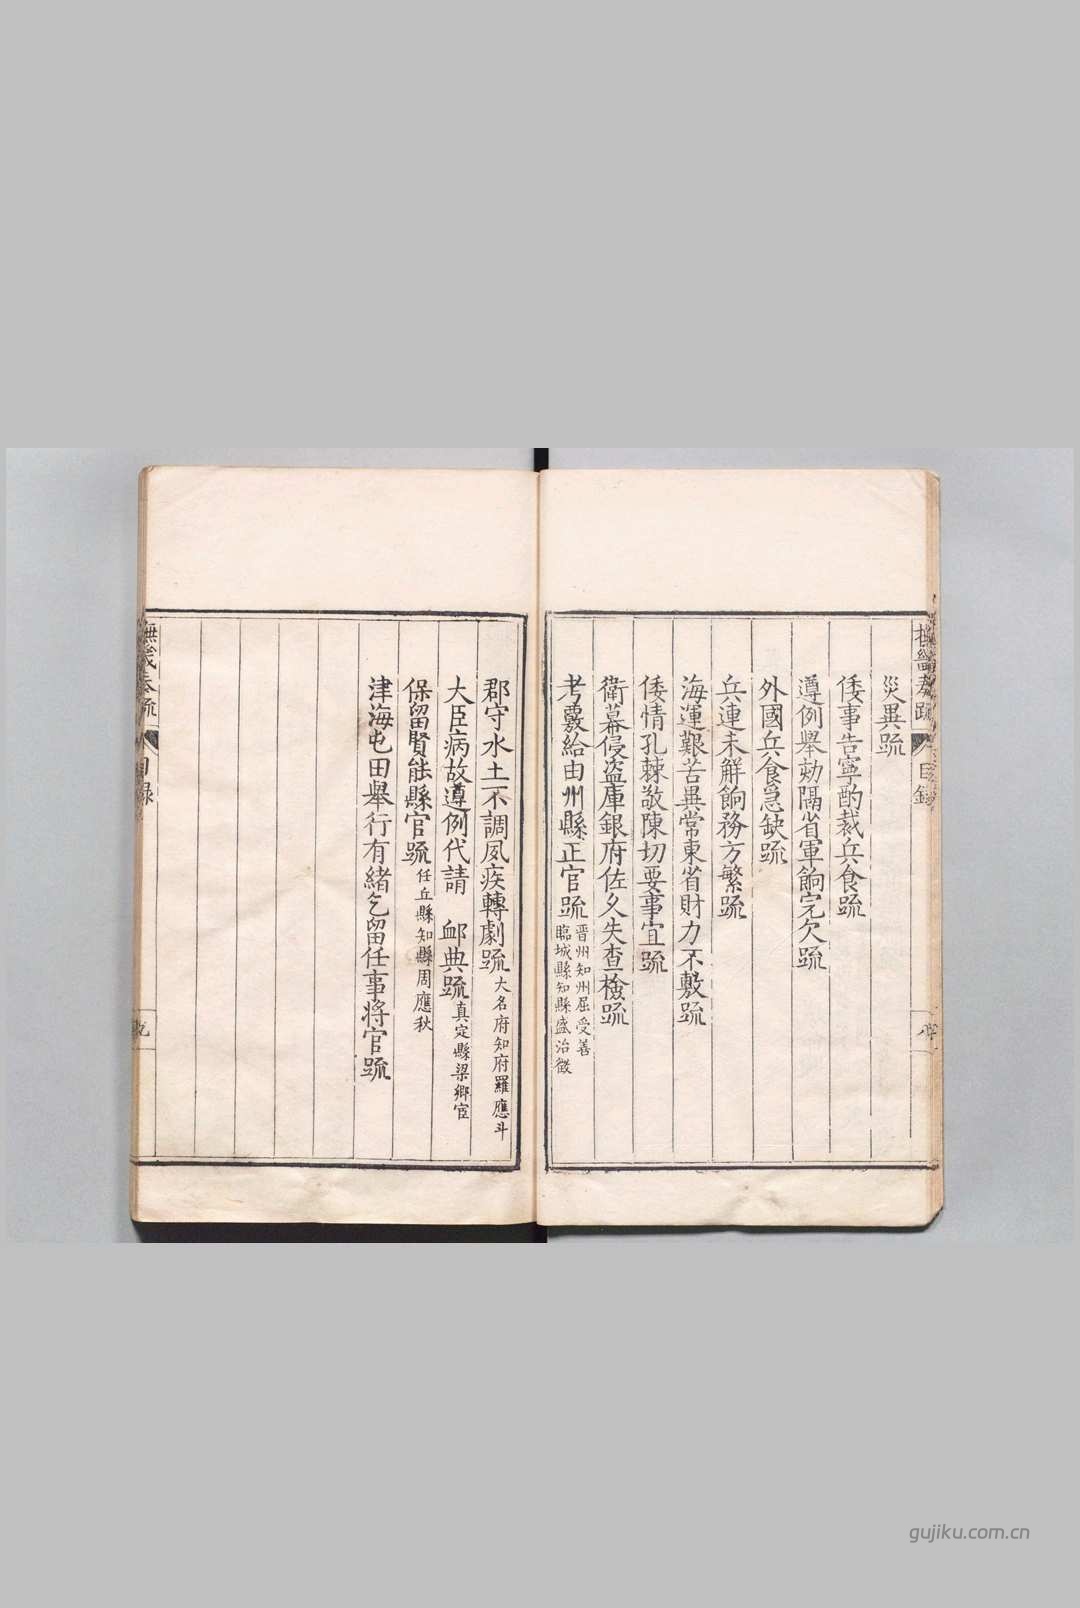 災異疏
倭事告寧酌裁兵食疏
遵例舉劾隔省軍餉完欠疏
外國兵食急缺疏
兵連未解餉務方繁疏
海運艱苦異常東省財力不敷疏
倭情孔棘敬陳切要事宜疏
衛幕侵盜庫銀府佐久失查檢疏
考覈給由州縣正官疏 晉州知州屈受善
臨城縣知縣盛治徵
郡守水土不調夙疾轉劇疏 大名府知府羅應斗
大臣病故遵例代請 卹典疏 真定縣梁鄉宦
保留賢能縣官疏 任丘縣知縣周應秋
津海屯田舉行有緒乞留任事將官疏
撫畿奏疏 目錄
gujiku.com.cn